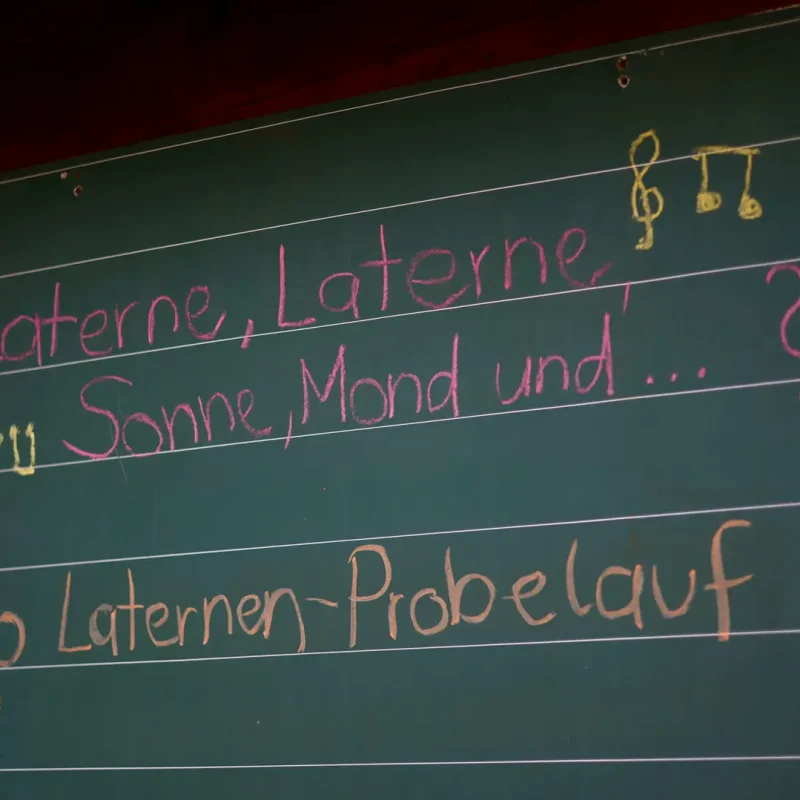 Laterne, Laterne,
Sonne, Mond und ...
Laternen-Probelauf